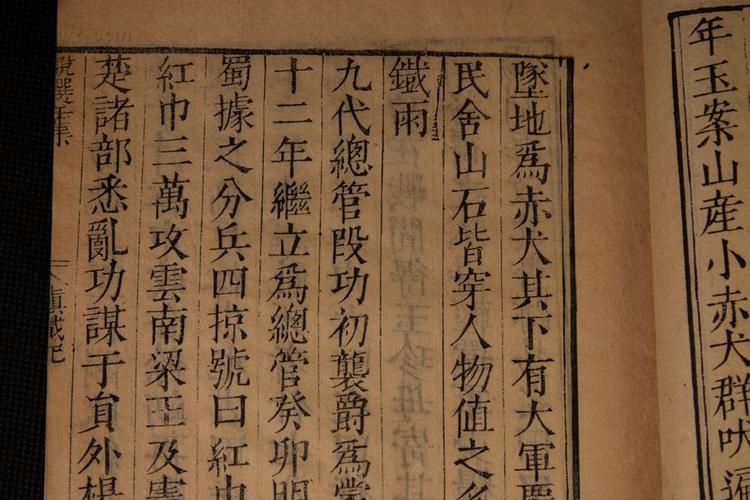 年玉案山産小赤犬群吠
墜地爲赤犬其下有大軍
民舍山石皆穿人物值之
鐵雨
九代總管段功初襲爵爲
十二年繼立爲總管癸卯明
蜀據之分兵四掠號曰紅巾
紅巾三萬攻雲南梁王及
楚諸部悉亂功謀于員外楊
說選壬集
滇載記